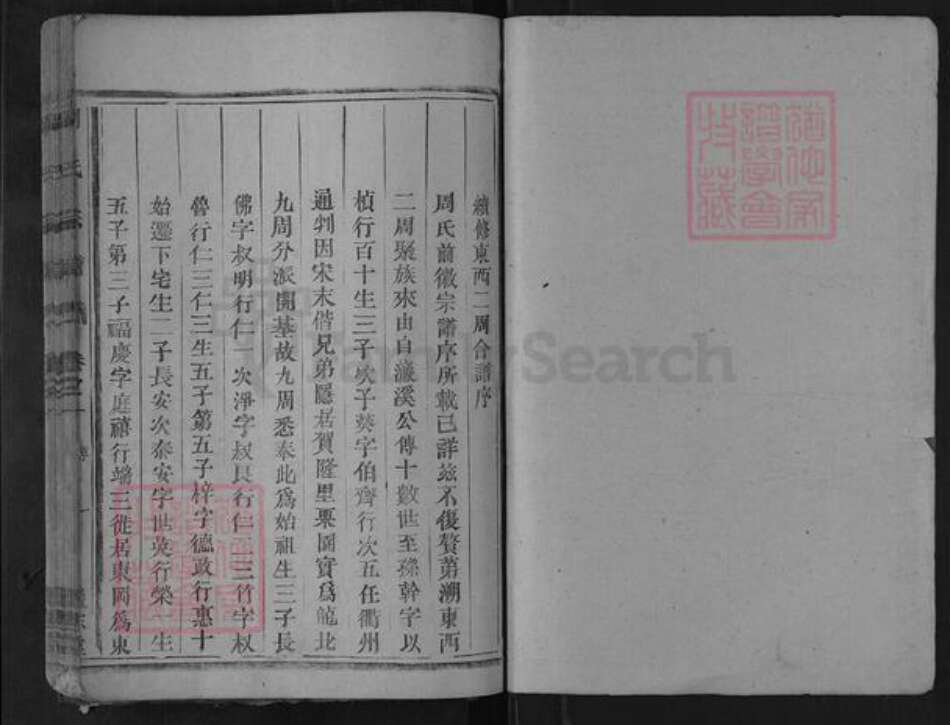 續修東西二周合譜序
周氏前徽宗譜序所載已詳茲不復贅第溯東西
二周聚族來由自濂溪公傳十數世至孫幹字以
楨行百十生三子次子葵字伯齊行次五任衢州
通判因宋末偕兄弟隱居賀隆里栗園實為龍北
九周分派開基故九周悉奉此為始祖生三子長
佛字叔明行仁一次淨字叔良行仁二三竹字叔
魯行仁三仁三生五子第五子梓字德政行惠十
始遷下宅生二子長安次泰安字世英行榮一生
五子第三子福慶字庭禧行端三徙居東岡為東
周氏宗譜
卷之一
序
FamilySearch
譜學會